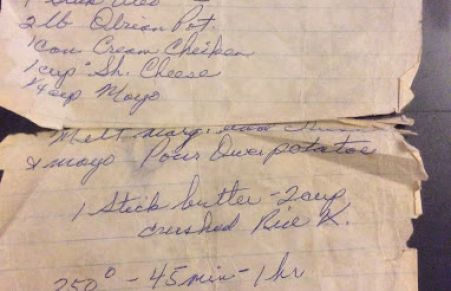 1 Stick Oleo
2 lb Obrian Pot.
1 can Cream Chicken
1 cup Sh. Cheese
1/4 cup Mayo
Melt marg. and
& mayo Pour Over potatoe
1 Stick butter - 2 cup
crushed Rice K.
250° - 45 min - 1 hr